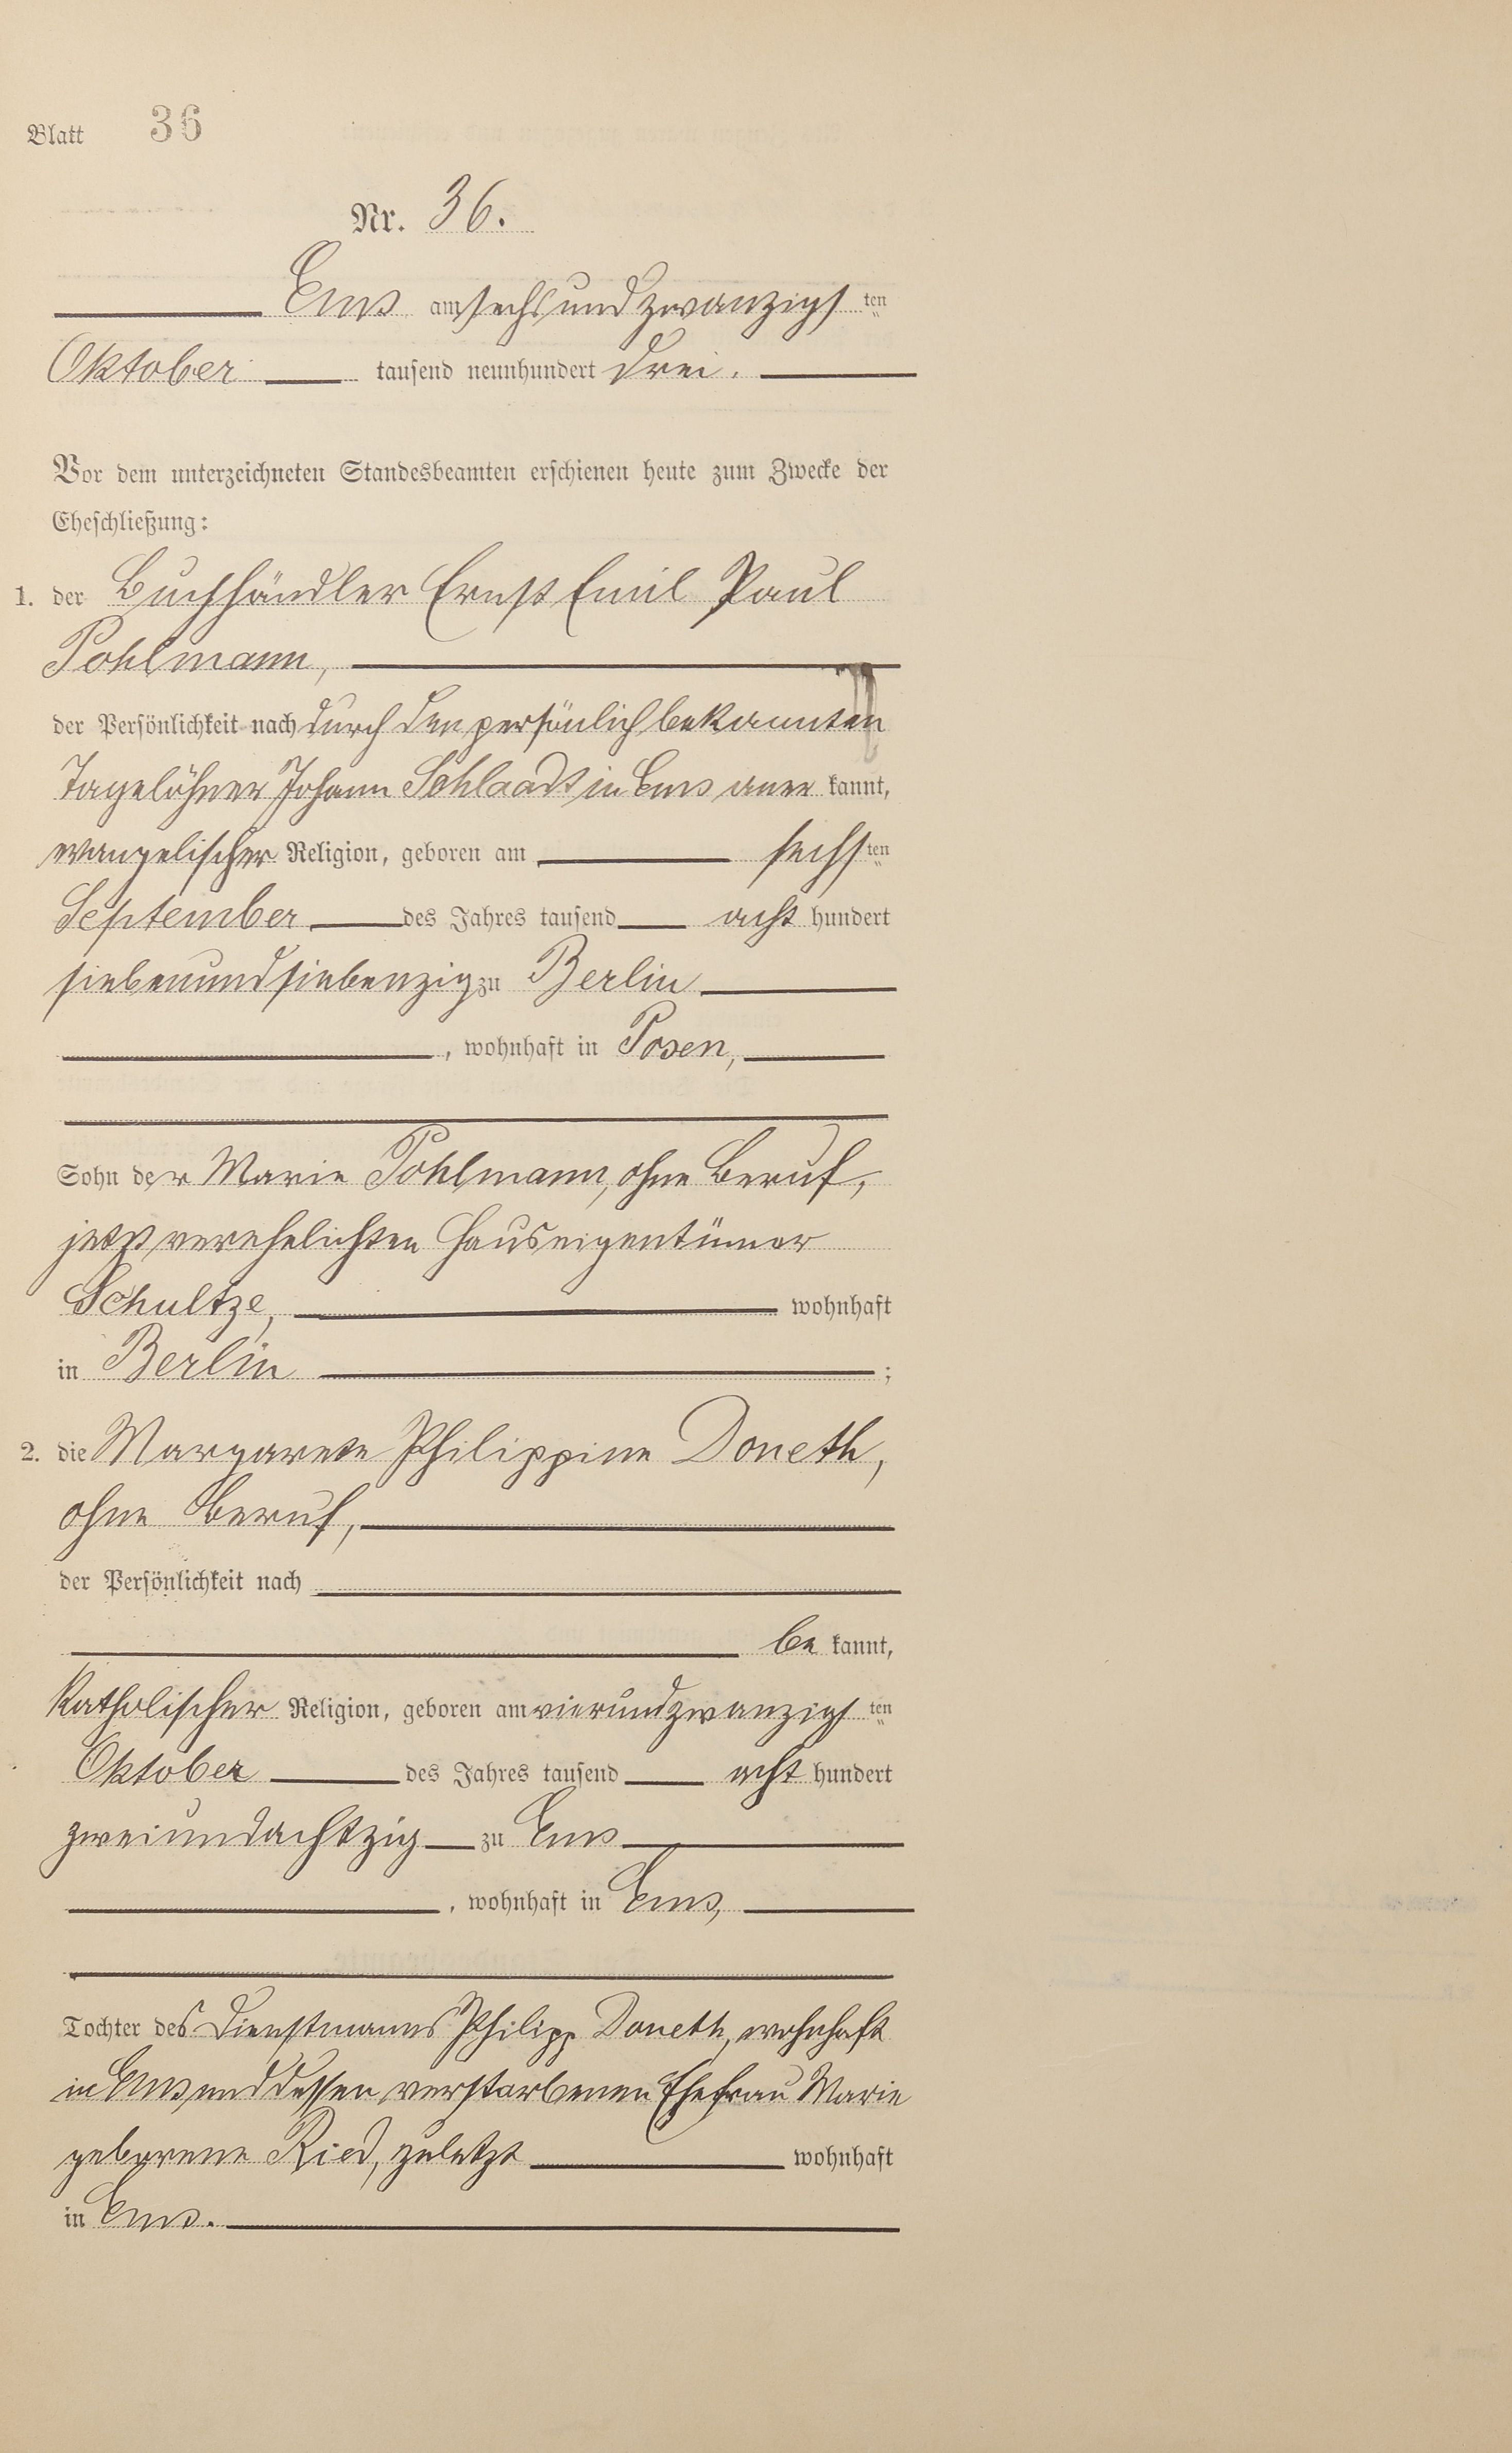 Blatt 36
Nr. 36.
Ems am sechsundzwanzigsten
Oktober tausend neunhundert drei.
Vor dem unterzeichneten Standesbeamten erschienen heute zum Zwecke der
Eheschließung:
1. der Buchhändler Ernst Emil Paul
Pohlmann,
der Persönlichkeit nach durch den persönlich bekannten
Tagelöhner Johann Schlaadt in Ems anerkannt,
evangelischer Religion, geboren am sechsten
September des Jahres tausend acht hundert
siebenundsiebenzig zu Berlin
, wohnhaft in Posen,
Sohn der Marie Pohlmann, ohne Beruf,
jetzt verehelichten Hauseigentümer
Schultze, wohnhaft
in Berlin ;
2. die Margarete Philippine Doneth,
ohne Beruf,
der Persönlichkeit nach
be kannt,
katholischer Religion, geboren am vierundzwanzigsten
Oktober des Jahres tausend acht hundert
zweiundachtzig zu Ems
, wohnhaft in Ems,
Tochter des Dienstmanns Philipp Doneth, wohnhaft
in Ems und dessen verstorbenen Ehefrau Marie
geborene Ried, zuletzt wohnhaft
in Ems.